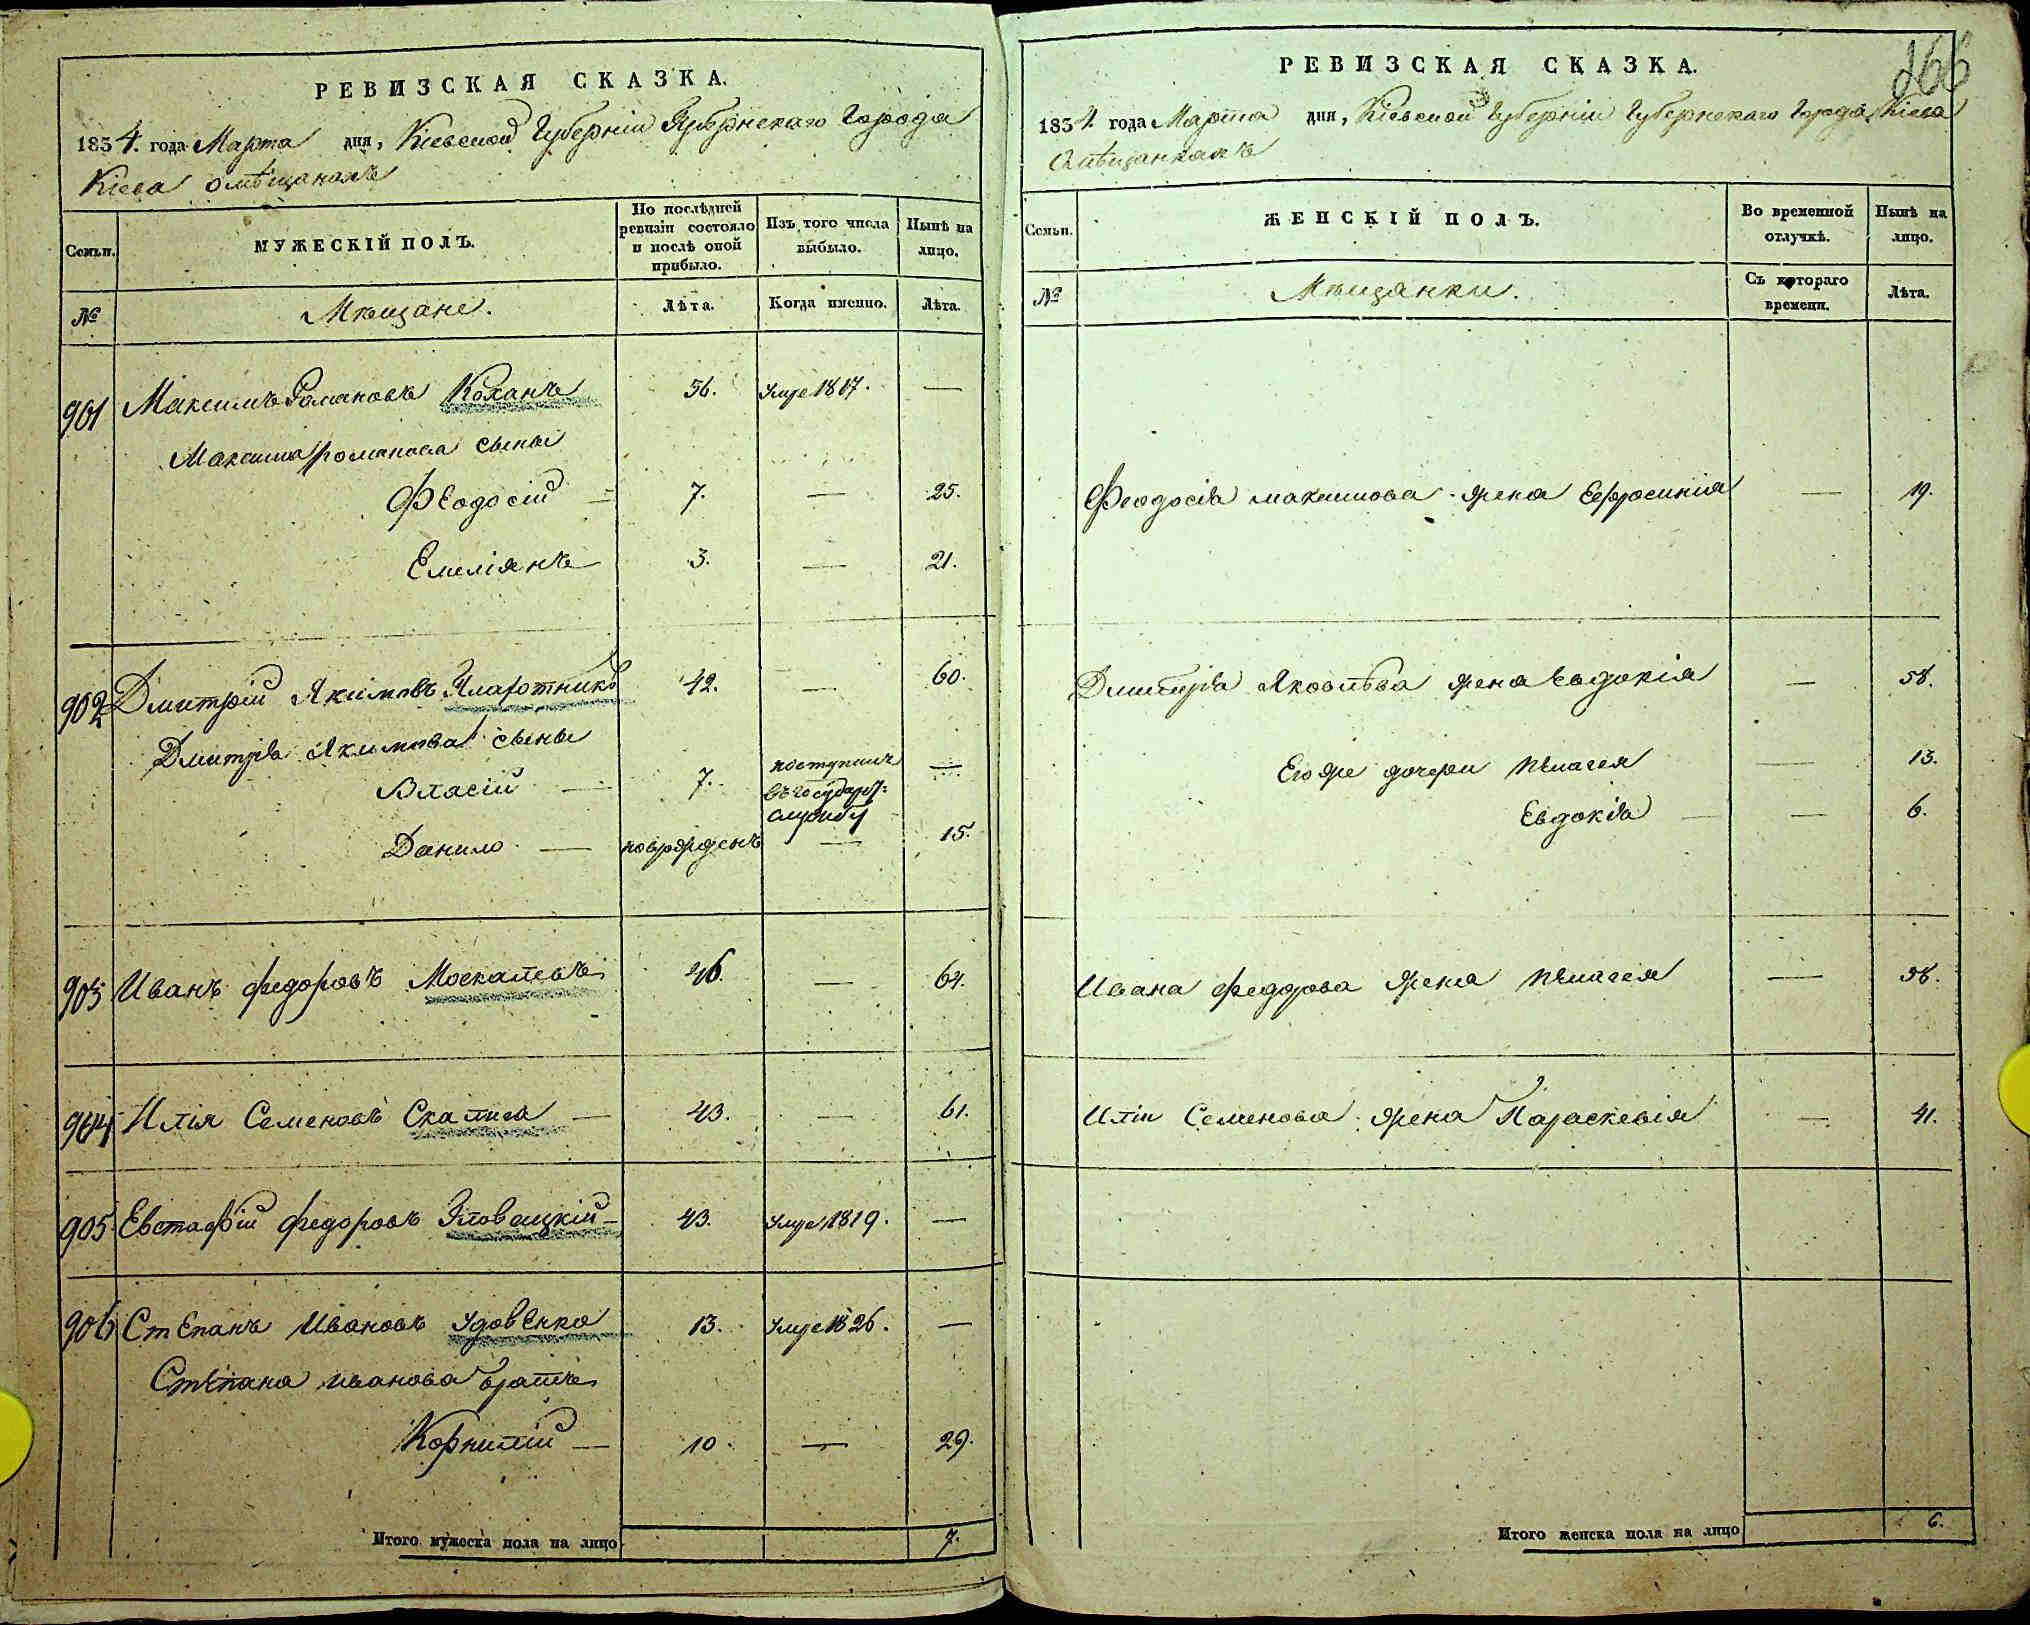 РЕВИЗСКАЯ СКАЗКА.
1834. года Марта дня, Кіевской Губерніи Губернскаго Города
Кіева омѣщанахъ
Семьи.
МУЖЕСКІЙ ПОЛЪ.
По послѣдней ревизіи состояло и послѣ оной прибыло.
Изъ того числа выбыло.
Нынѣ на лицо.
№
Мѣщане.
Лѣта.
Когда именно.
Лѣта.
901 Максимъ Романовъ Коханъ 56. Умре 1817. —
Максима Романова сыны
Феодосій 7. — 25.
Емеліянъ 3. — 21.
902 Дмитрій Якимовъ 42. — 60.
Дмитрія Якимова сыны
Власій — 7. поступилъ въ государ: службу —
Данило — новорожденъ — 15.
903 Иванъ Федоровъ Москалевъ 46. — 64.
904 Илія Семеновъ Скалига — 43. — 61.
905 Евстафій Федоровъ — 43. Умре 1819. —
906 Степанъ Ивановъ Удовенко 13. Умре 1826. —
Степана Иванова братъ
Корнилій — 10. — 29.
Итого мужеска пола на лицо 7.
266
РЕВИЗСКАЯ СКАЗКА.
1834. года Марта дня, Кіевской Губерніи Губернскаго Города Кіева
Омѣщанкахъ
Семьи.
ЖЕНСКІЙ ПОЛЪ.
Во временной отлучкѣ.
Нынѣ на лицо.
№
Мѣщанки.
Съ котораго времени.
Лѣта.
Феодосія Максимова жена Ефросинія — 19.
Дмитрія Яковлѣва жена Евдокія — 58.
Его же дочери Пелагея — 13.
Евдокія — 6.
Ивана Федорова жена Пелагея — 58.
Иліи Семенова жена Параскевія — 41.
Итого женска пола на лицо 6.